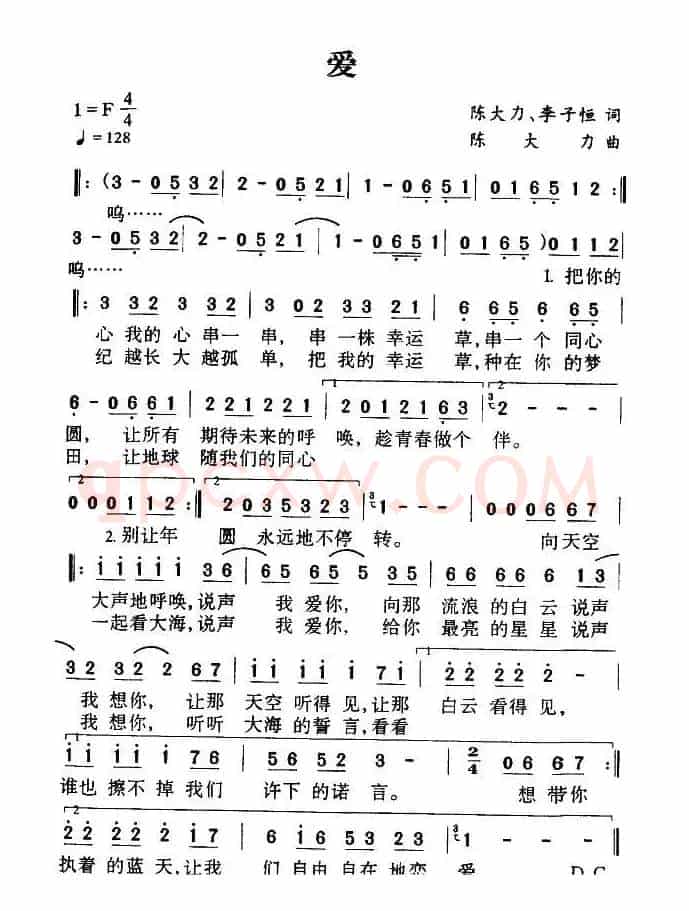 爱
1=F 4/4
陈大力、李子恒 词
♩=128
陈 大 力 曲
‖:(3-0532|2-0521|1-0651|016512:‖
呜……
3-0532|2-0521|1-0651|0165)0112|
呜…… 1.把你的
‖:3 32 3 32|3 02 33 21|6 65 6 65|
心 我的 心 串一 串, 串 一株 幸运 草,串一 个 同心
纪 越长 大 越孤 单, 把 我的 幸运 草,种在 你 的梦
6-0661|221221|2012163|3 2---|
圆, 让所有 期待未来的呼 唤,趁青春做个 伴。
田, 让地球 随我们的同心
000112:‖2035323|3 1--|000667|
2.别让年 圆 永远地不停 转。 向天空
‖:i i i i i 36|65 65 5 35|66 66 6 13|
大声地呼唤,说声 我 爱你, 向那 流浪的白云说声
一起看大海,说声 我 爱你, 给你 最亮的星星说声
32 32 2 67|i i i i i 7i|2 22 2 2|
我 想你, 让那 天空听得见,让那 白云看得见,
我 想你, 听听 大海的誓言,看看
i i i i 76|56 52 3-|2/4 06 67:‖
谁也擦不掉我们 许下的诺言。 想带你
22 22 2 i7|6i65 53 23|3 1--‖
执着的蓝天,让我 们自由自在地恋 爱 D.C.
qpcxw.COM